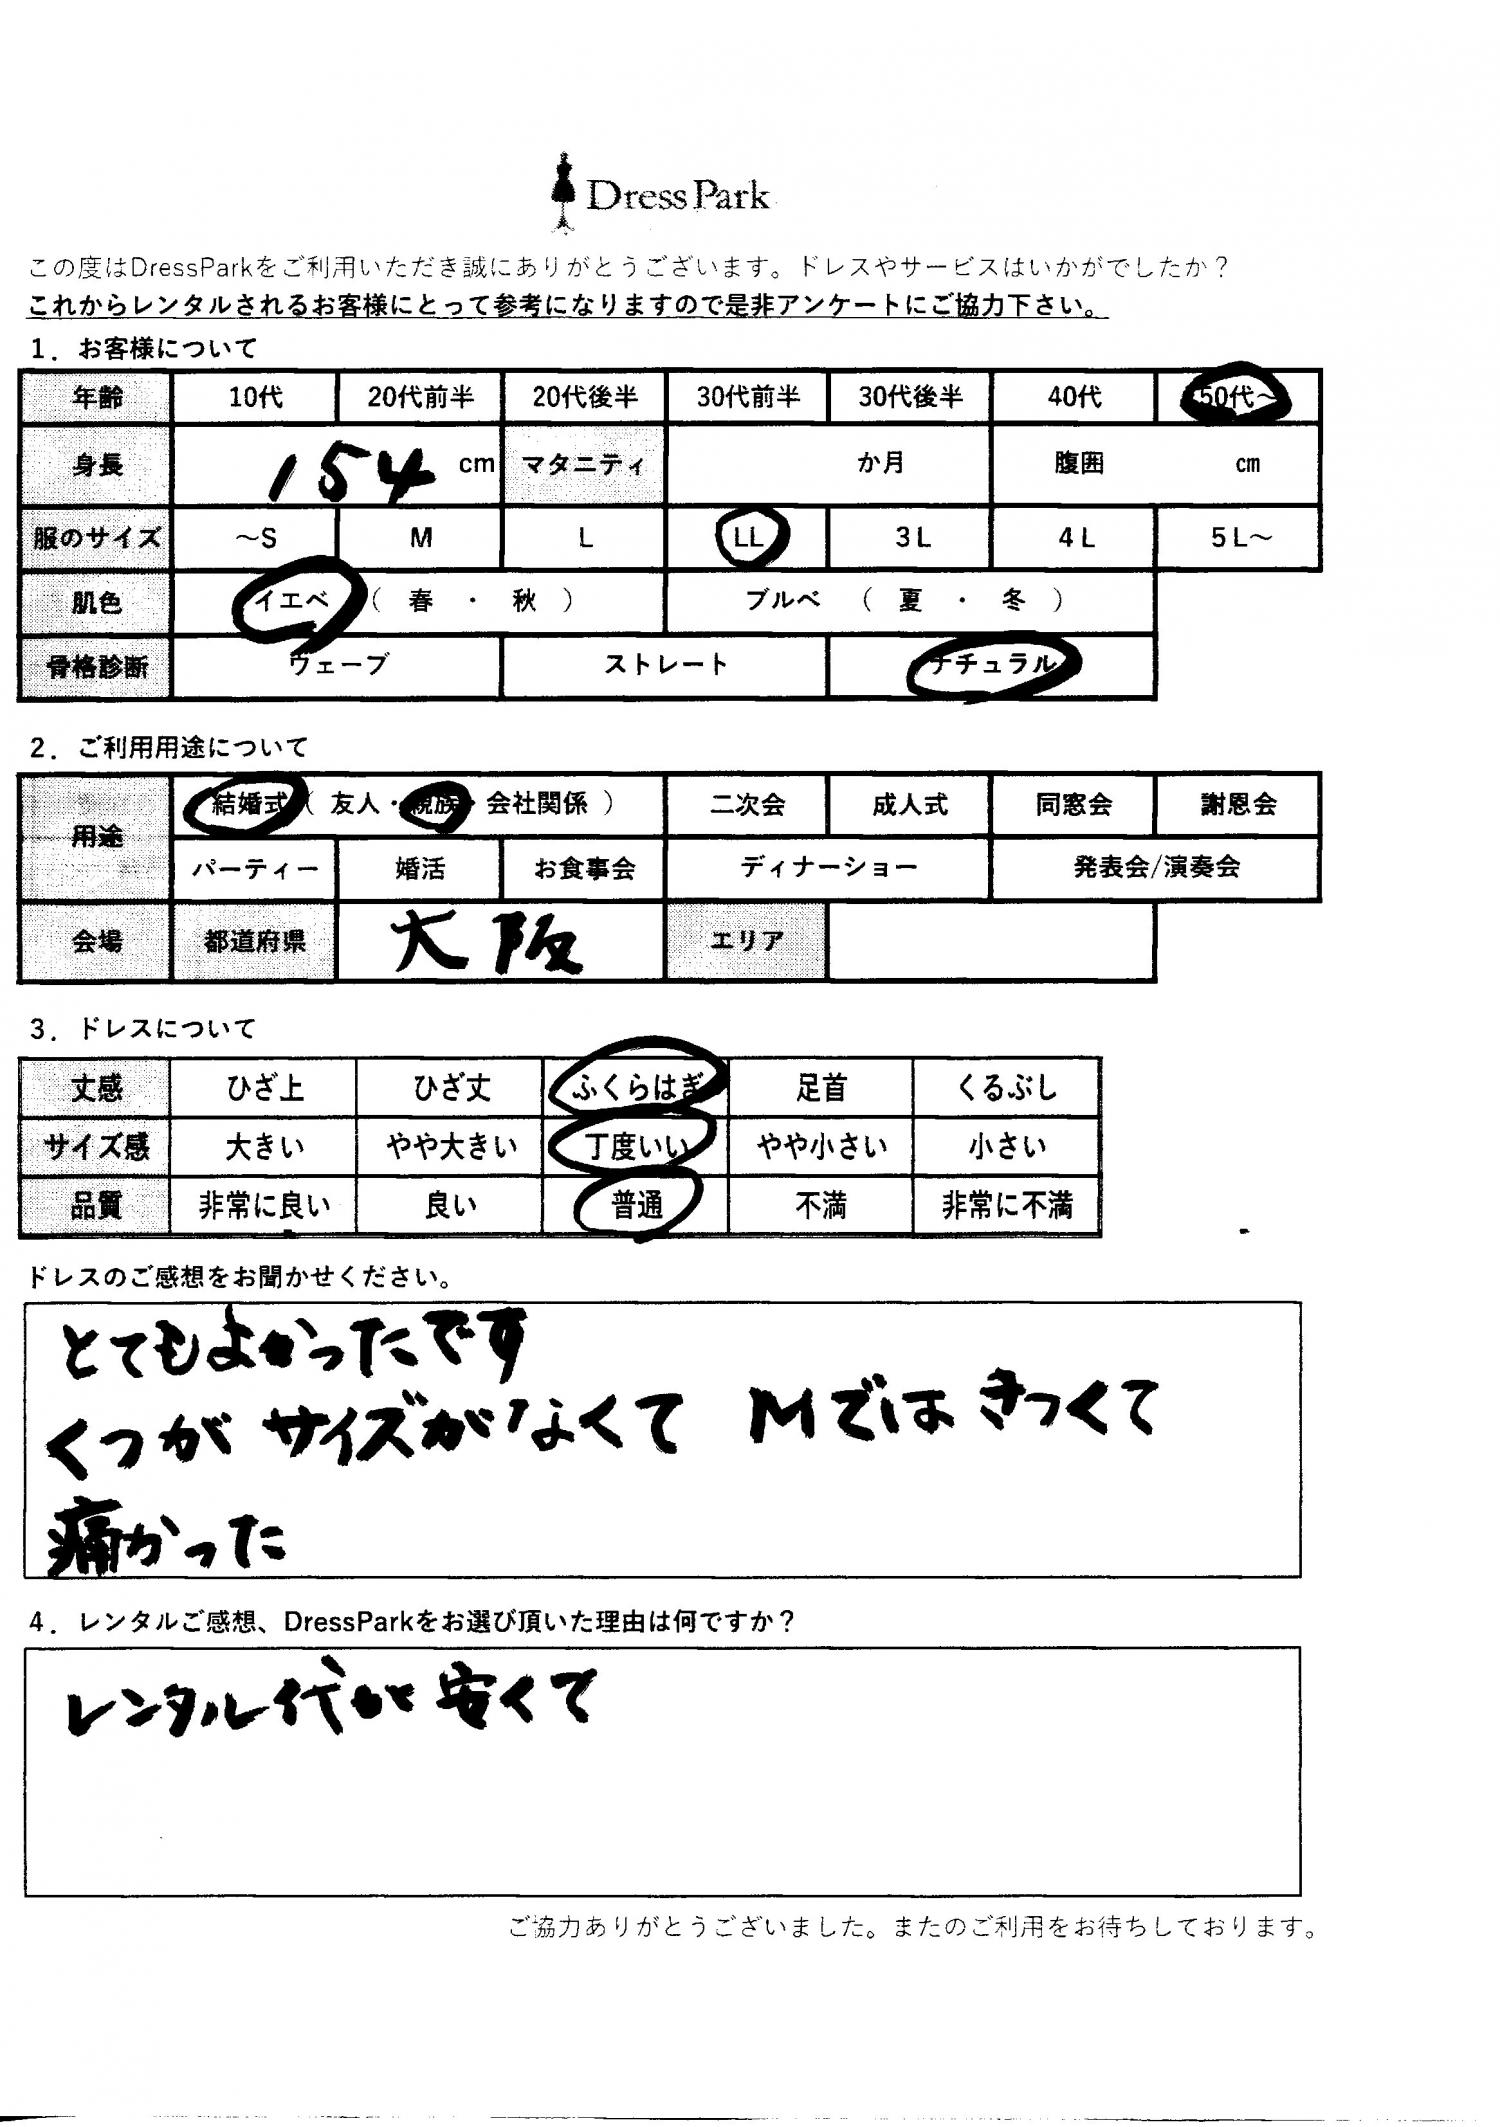 DressPark
この度はDressParkをご利用いただき誠にありがとうございます。ドレスやサービスはいかがでしたか？
これからレンタルされるお客様にとって参考になりますので是非アンケートにご協力下さい。
1．お客様について
年齢 10代 20代前半 20代後半 30代前半 30代後半 40代 50代～
身長 154 cm マタニティ か月 腹囲 cm
服のサイズ ～S M L LL 3L 4L 5L～
肌色 イエベ （ 春 ・ 秋 ） ブルベ （ 夏 ・ 冬 ）
骨格診断 ウェーブ ストレート ナチュラル
2．ご利用用途について
用途 結婚式（ 友人・親族・会社関係 ） 二次会 成人式 同窓会 謝恩会
パーティー 婚活 お食事会 ディナーショー 発表会/演奏会
会場 都道府県 大阪 エリア
3．ドレスについて
丈感 ひざ上 ひざ丈 ふくらはぎ 足首 くるぶし
サイズ感 大きい やや大きい 丁度いい やや小さい 小さい
品質 非常に良い 良い 普通 不満 非常に不満
ドレスのご感想をお聞かせください。
とてもよかったです
くつが サイズがなくて Mでは きつくて
痛かった
4．レンタルご感想、DressParkをお選び頂いた理由は何ですか？
レンタル代が安くて
ご協力ありがとうございました。またのご利用をお待ちしております。